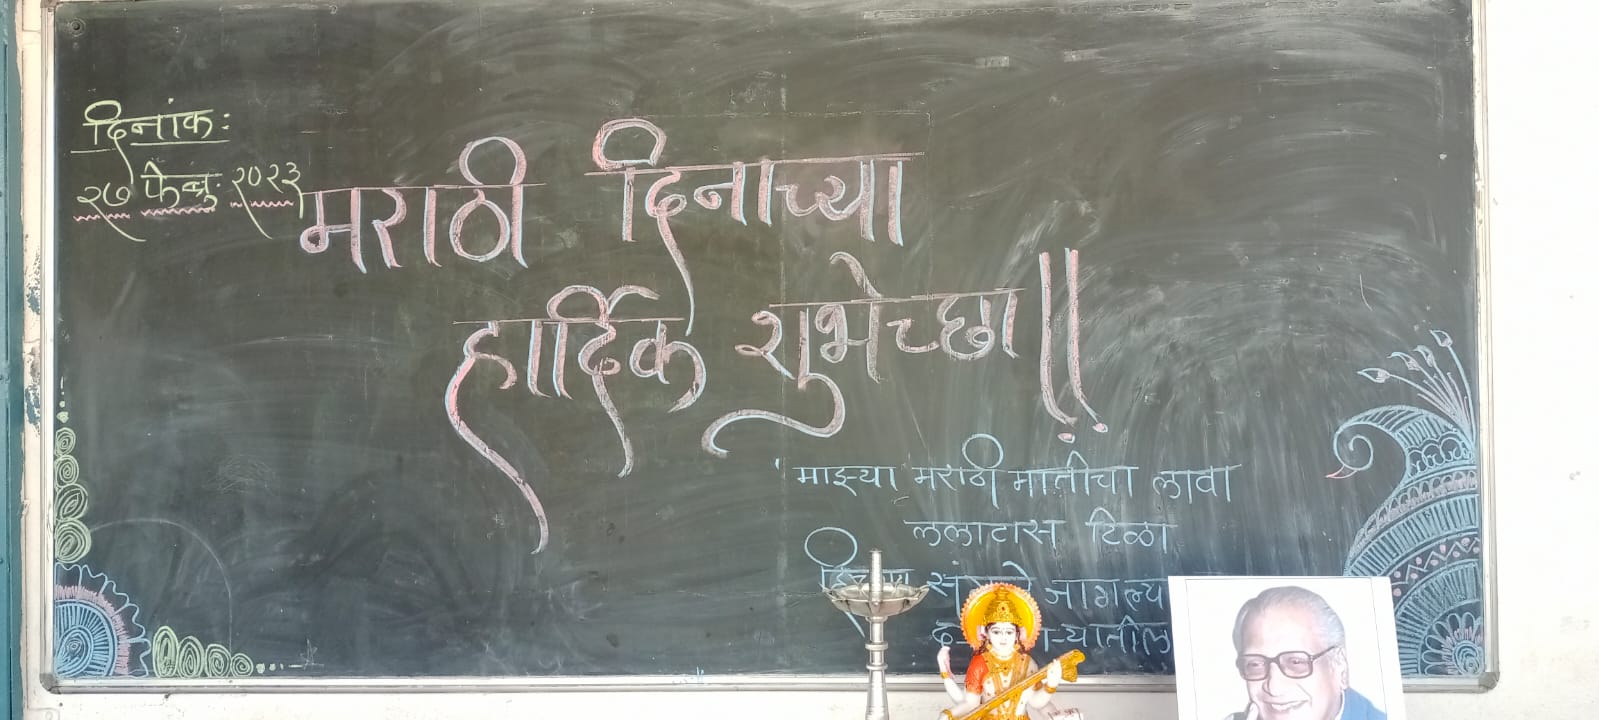 दिनांक:
२७ फेब्रु. २०२३
मराठी दिनाच्या
हार्दिक शुभेच्छा !!
'माझ्या मराठी मातीचा लावा
ललाटास टिळा
जागल्या